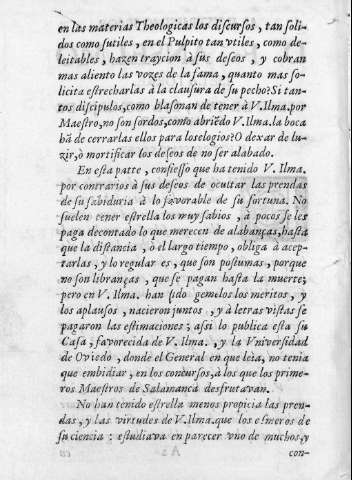 en las materias Theologicas los discursos, tan soli-
dos como sutiles, en el Pulpito tan vtiles, como de-
leitables, hazen trayciòn à sus deseos, y cobran
mas aliento las vozes de la fama, quanto mas so-
licita estrecharlas à la clausura de su pecho? Si tan-
tos discipulos, como blasonan de tener à V. Ilma. por
Maestro, no son sordos, como abriẽdo V. Ilma. la boca
hã de cerrarlas ellos para los elogios? O dexar de lu-
zir, ò mortificar los deseos de no ser alabado.
En esta parte, confiesso que ha tenido V. Ilma.
por contrarios à sus deseos de ocultar las prendas
de su sabiduria à lo favorable de su fortuna. No
suelen tener estrella los muy sabios, à pocos se les
paga decontado lo que merecen de alabanças, hasta
que la distancia, ò el largo tiempo, obliga à acep-
tarlas, y lo regular es, que son postumas, porque
no son libranças, que se pagan hasta la muerte;
pero en V. Ilma. han sido gemelos los meritos, y
los aplausos, nacieron juntos, y à letras vistas se
pagaron las estimaciones; assi lo publica esta su
Casa, favorecida de V. Ilma., y la Vniversidad
de Oviedo, donde el General en que leìa, no tenia
que embidiar, en los concursos, à los que los prime-
ros Maestros de Salamanca desfrutavan.
No han tenido estrella menos propicia las pren-
das, y las virtudes de V. Ilma. que los esmeros de
su ciencia: estudiava en parecer vno de muchos, y
con-